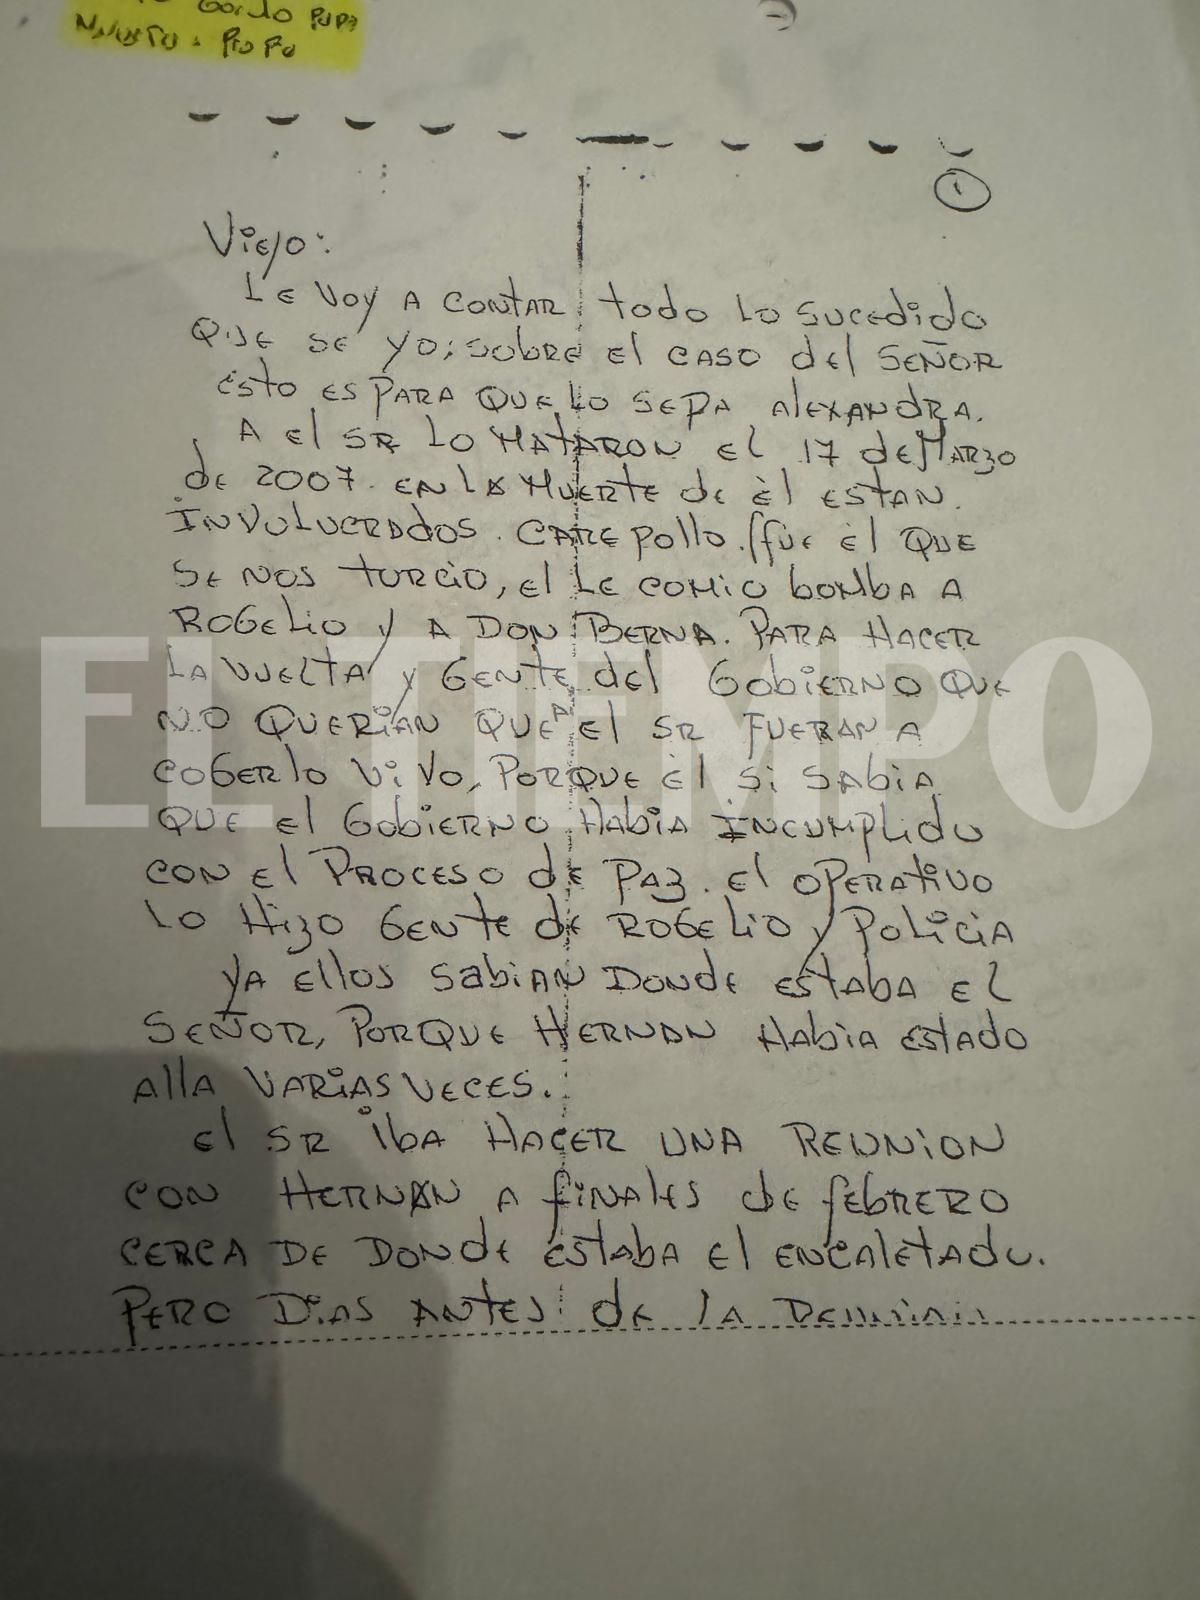 Gordo PAPA
①
Viejo:
LE VOY A CONTAR todo LO SUCEdido
QUE SE YO; SOBRE El CASO dEl SEÑOR
ESto ES PARA QUE LO SEPA AlEXANdRA.
A El SR LO MATARON EL 17 dE MARZO
dE 2007. EN LA MUERtE dE ÉL EStAN.
INVOLUCRADOS. CARE pollo. (fUE él QUE
SE NOS tURCIO, El LE COMIO bOMbA A
ROGELIO Y A DON BERNA. PARA HACER
LA VUELTA Y GENTE dEl GObiERNO QUE
NO QUERIAN QUE A El SR FUERAN A
COGERlO ViVO, PORQUE ÉL Si SAbiA
QUE El GObiERNO HAbiA INCUMPlidO
CON El PROCESO dE PAZ. El OPERAtiVO
LO HIZO GENtE dE ROGELiO Y POLiCiA
YA EllOS SAbiAN DONdE EStABA EL
SEÑOR, PORQUE HERNAN HAbiA EStADO
AllA VARiAS VECES.
El SR IbA HACER UNA REUNiON
CON HERNAN A fiNALES dE fEbRERO
CERCA DE DONdE EStABA El ENCAlEtAdO.
PERO DiAS ANTES dE lA
EL TIEMPO